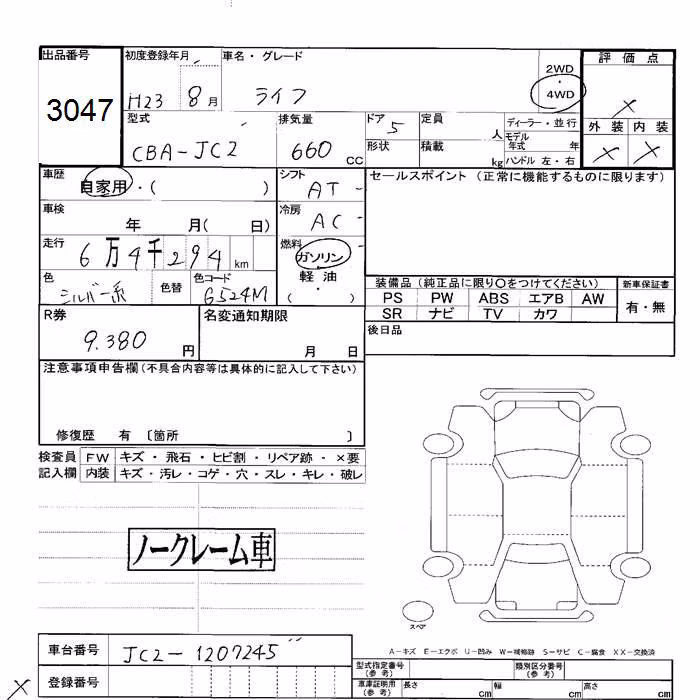 出品番号 初度登録年月 車名・グレード 評価点
3047 H23 8月 ライフ 2WD 4WD ×
型式 排気量 ドア 5 定員 人 ディーラー・並行 外装 内装
CBA-JC2 660 CC 形状 積載 kg モデル年式 年 ハンドル 左・右 × ×
車歴 自家用・( ) シフト AT セールスポイント (正常に機能するものに限ります)
車検 年 月( 日) 冷房 AC
走行 6万4千294 km 燃料 ガソリン・軽油 ( )
色 シルバー系 色替 色コード G524M
装備品 (純正品に限り○をつけてください) 新車保証書
PS PW ABS エアB AW 有・無
SR ナビ TV カワ
R券 9.380 円 名変通知期限 月 日 後日品
注意事項申告欄(不具合内容等は具体的に記入して下さい)
修復歴 有 〔箇所 〕
検査員 FW キズ・飛石・ヒビ割・リペア跡・×要
記入欄 内装 キズ・汚レ・コゲ・穴・スレ・キレ・破レ
ノークレーム車
スペア
A-キズ E-エクボ U-凹み W-補修跡 S-サビ C-腐食 XX-交換済
車台番号 JC2-1207245 型式指定番号 (参考) 類別区分番号 (参考)
× 登録番号 車庫証明用 (参考) 長さ cm 幅 cm 高さ cm